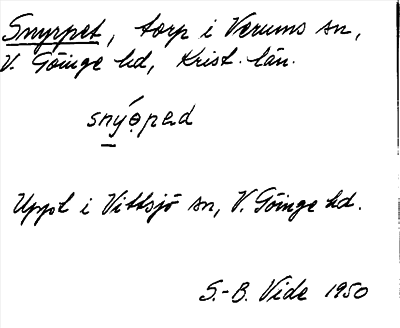 Snyrpet, torp i Verums sn,
V. Göinge hd, Krist. län.
snýɵ̣ped
Uppt i Vittsjö sn, V. Göinge hd.
S.-B. Vide 1950